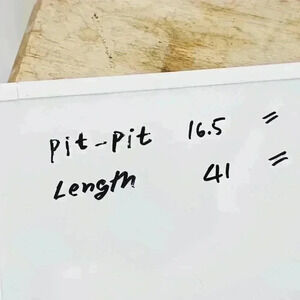 Pit-Pit 16.5 "
Length 41 "